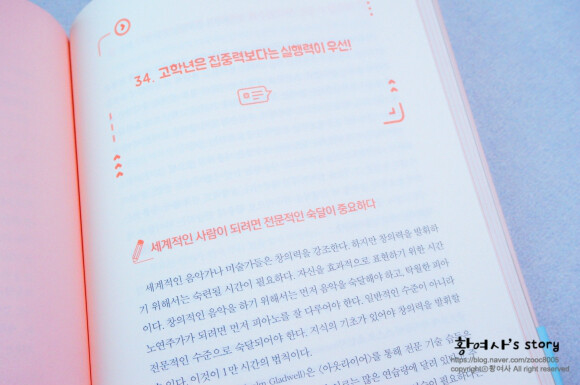 34. 고학년은 집중력보다는 실행력이 우선!
세계적인 사람이 되려면 전문적인 숙달이 중요하다
세계적인 음악가나 미술가들은 창의력을 강조한다. 하지만 창의력을 발휘하
기 위해서는 숙련될 시간이 필요하다. 자신을 효과적으로 표현하기 위한 시간
이다. 창의적인 음악을 하기 위해서는 먼저 음악을 숙달해야 하고, 탁월한 피아
노연주가가 되려면 먼저 피아노를 잘 다루어야 한다. 일반적인 수준이 아니라
전문적인 수준으로 숙달되어야 한다. 지식의 기초가 있어야 창의력을 발휘할
수 있다. 이것이 1만 시간의 법칙이다.
Gladwell)은 <아웃라이어>를 통해 전문 기술 습득은
많은 연습량에 달려 있
필요하다.
황여사's story
https://blog.naver.com/zooc8005
copyrightⓒ황여사 All right reserved